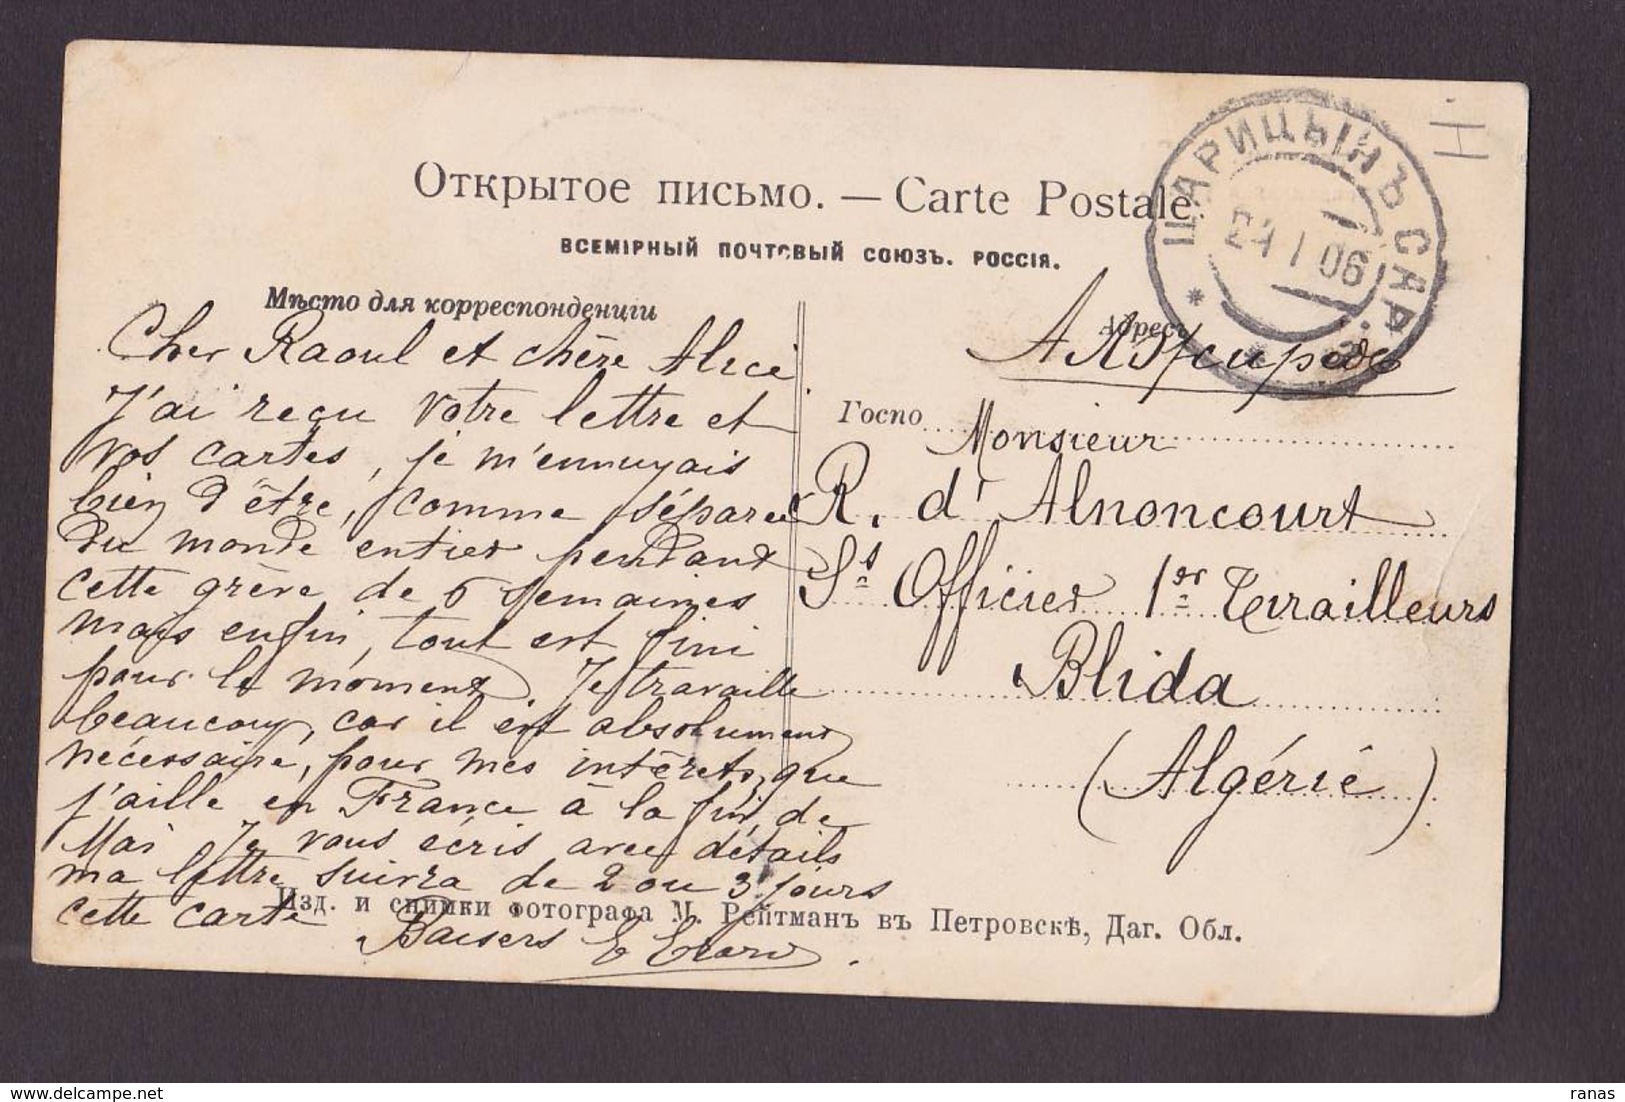 Открытое письмо. — Carte Postale.
ВСЕМІРНЫЙ ПОЧТОВЫЙ СОЮЗЪ. РОССІЯ.
ЦАРИЦЫНЪ САР.
24 1 06
Мѣсто для корреспонденціи
Адресъ
Cher Raoul et chère Alice
J'ai reçu votre lettre et
vos cartes, je m'ennuyais
bien d'être, comme séparée
du monde entier pendant
cette grève de 6 semaines
mais enfin, tout est fini
pour le moment. Je travaille
beaucoup, car il est absolument
nécessaire, pour mes intérets, que
j'aille en France à la fin de
Mai Je vous écris avec détails
ma lettre suivra de 2 ou 3 jours
cette carte
Baisers
Госпо
Monsieur
R. d'Alnoncourt
Ss Officier 1er Tirailleurs
Blida
(Algérie)
Изд. и снимки фотографа М. Рейтманъ въ Петровскѣ, Даг. Обл.
ranas